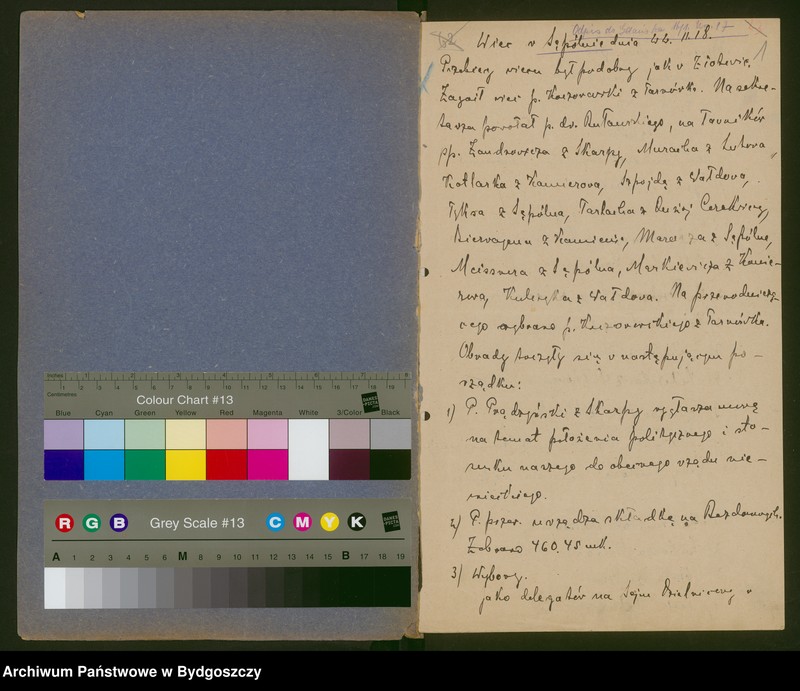 Wiec w Sępólnie dnia 24. 11. 18.
Przebieg wiecu był podobny jak w Złotowie.
Zagaił wiec p. Kaczorowski z Tarnówka. Na sekre-
tarza powołał p. dr. Rutawskiego, na ławników
pp. z Skarpy, z Lutowa,
Kotlarka z Kamierowa, z Wałdowa,
z Sępólna, z Dużej Cerekwicy,
z Kamienia, z Sępólna,
Meissnera z Sępólna, Markiewicza z Kamie-
rowa, z Wałdowa. Na przewodniczą-
cego wybrano p. Kaczorowskiego z Tarnówka.
Obrady toczyły się w następującym po-
rządku:
1) P. Prądzyński z Skarpy wygłasza mowę
na temat położenia politycznego i sto-
sunku naszego do obecnego rządu nie-
mieckiego.
2) P. przew. urządza składkę na Bezdomnych.
Zebrano 460.45 mk.
3) Wybory.
jako delegatów na Sejm Dzielnicowy w
Inches
Centimetres
Colour Chart #13
Blue Cyan Green Yellow Red Magenta White 3/Color Black
R G B Grey Scale #13 C M Y K
A 1 2 3 4 5 6 M 8 9 10 11 12 13 14 15 B 17 18 19
Archiwum Państwowe w Bydgoszczy